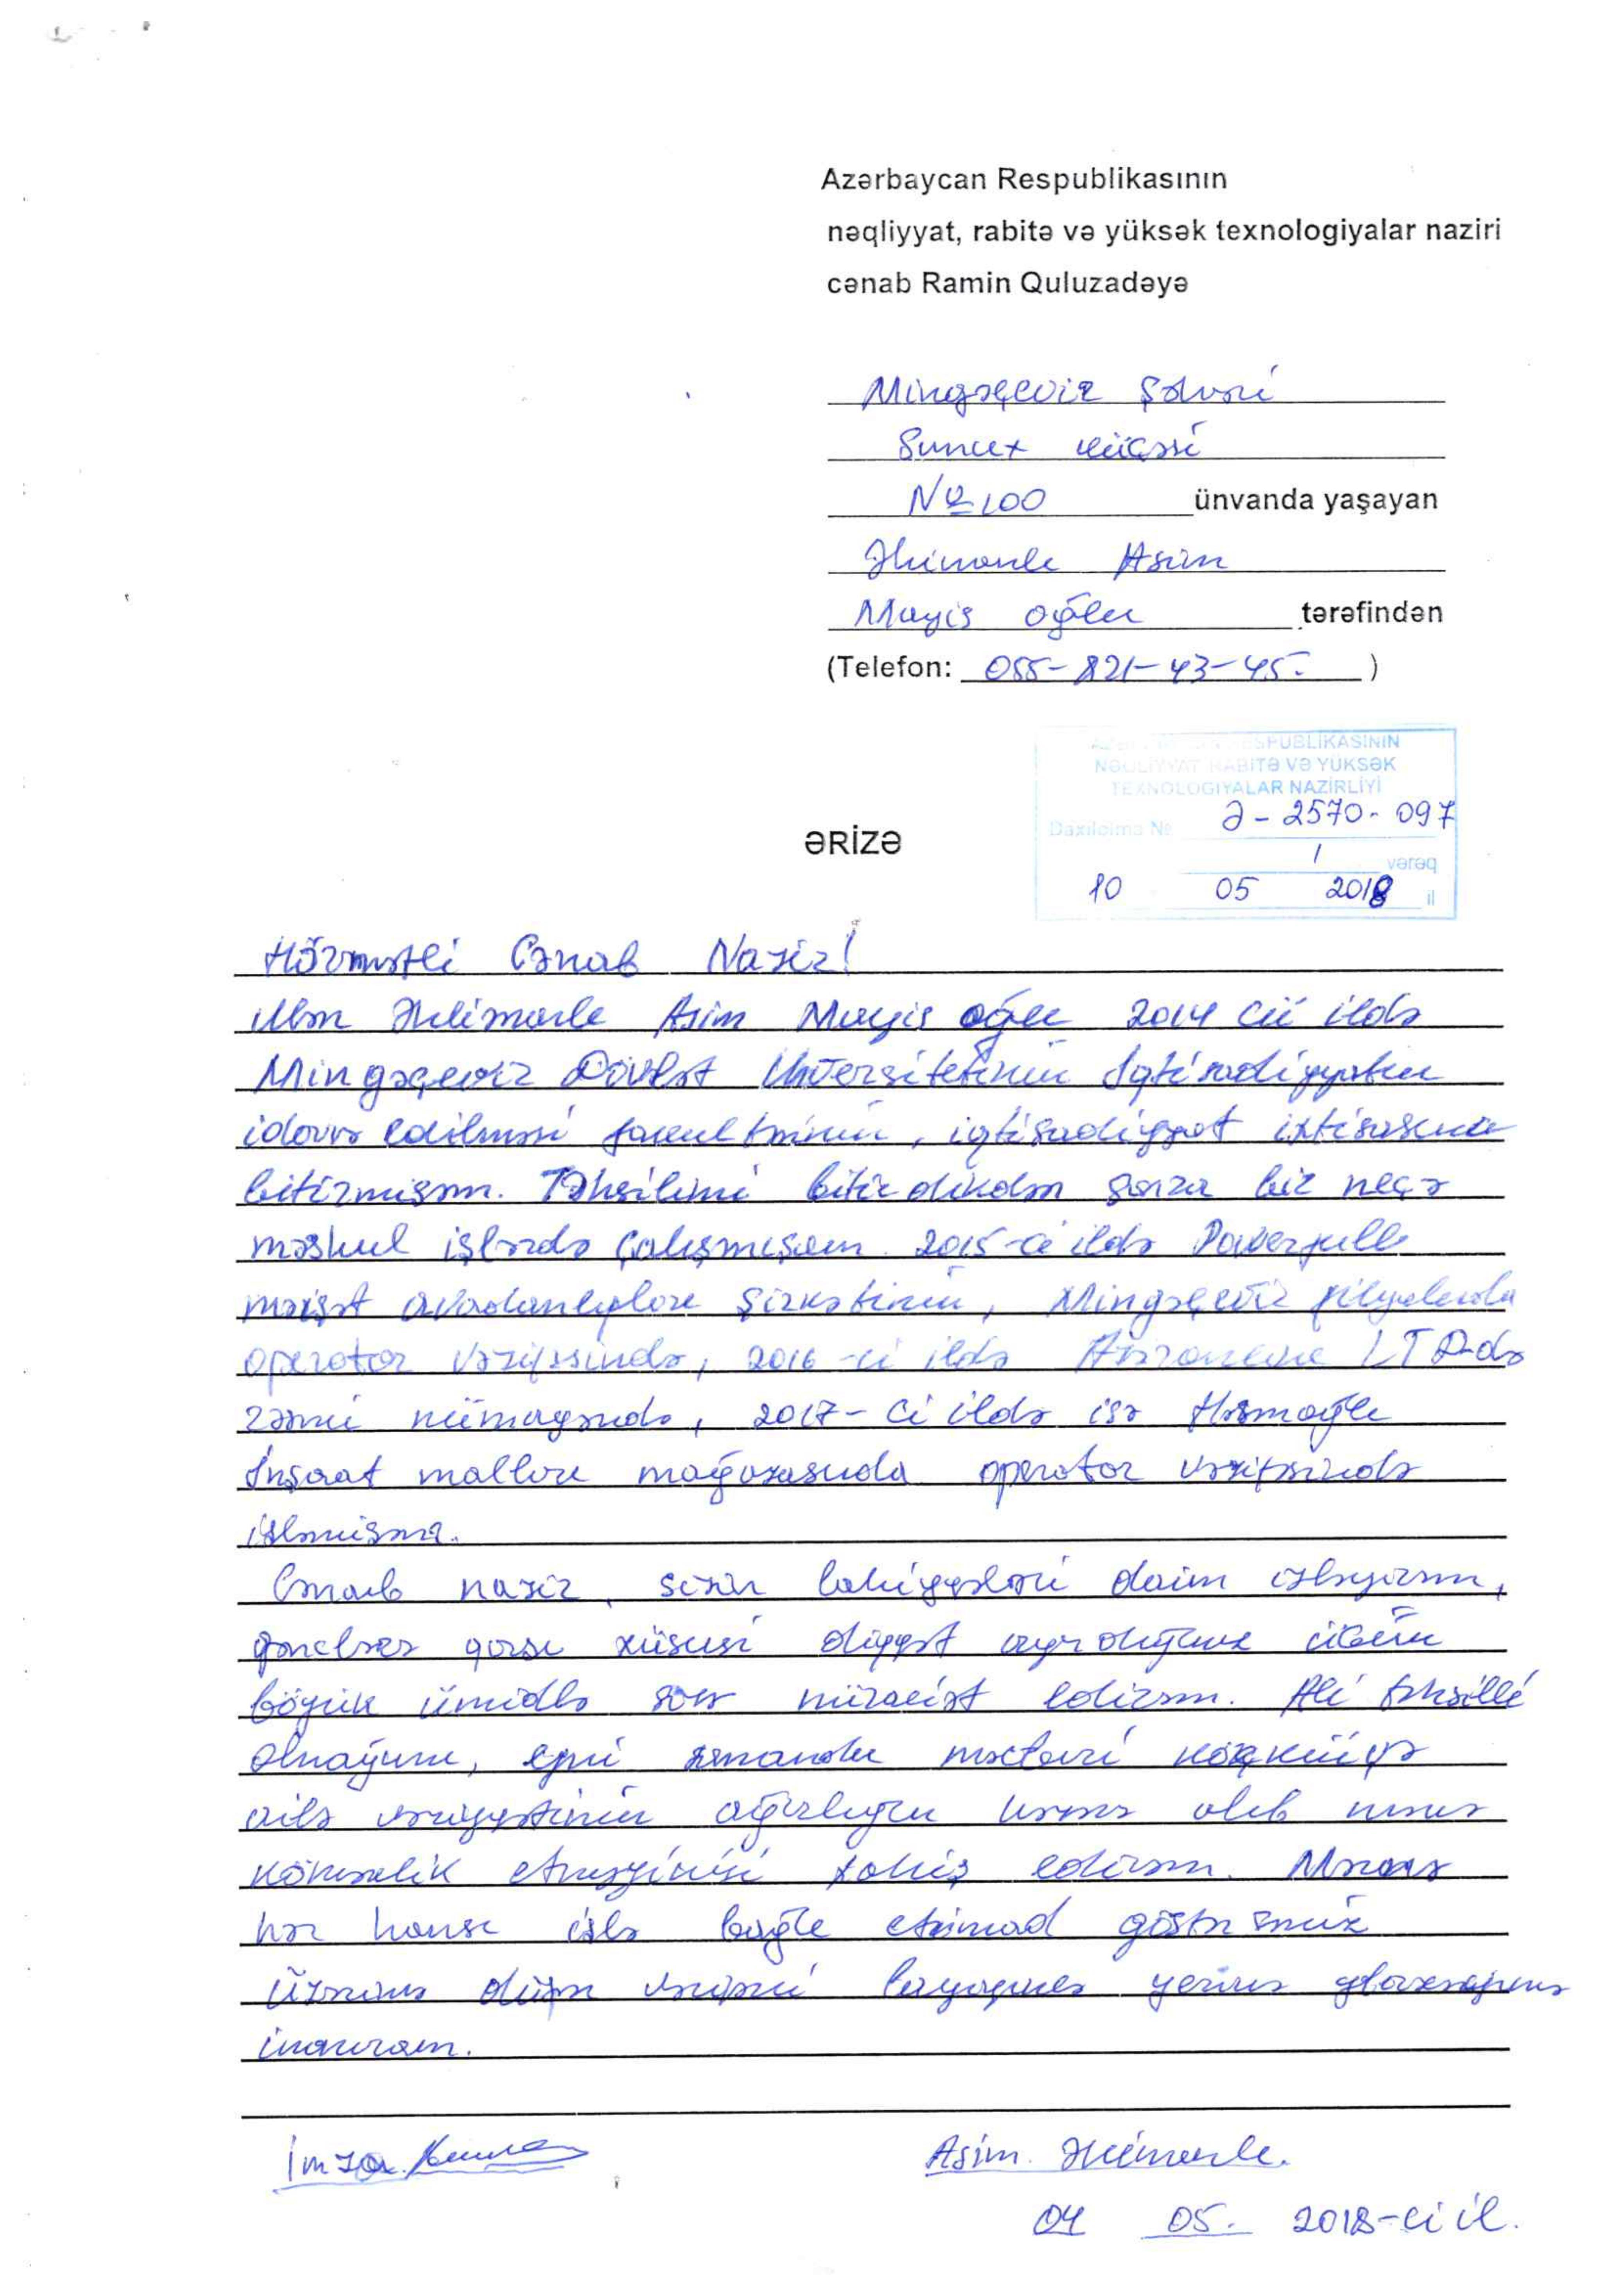 Azərbaycan Respublikasının
nəqliyyat, rabitə və yüksək texnologiyalar naziri
cənab Ramin Quluzadəyə
Mingəçevir şəhəri
küçəsi
№ 100 ünvanda yaşayan
Asim
Mayis oğlu tərəfindən
(Telefon: 055-821-43-45. )
RESPUBLİKASININ
NƏQLİYYAT RABİTƏ VƏ YÜKSƏK
TEXNOLOGİYALAR NAZİRLİYİ
Daxilolma № Ə-2570-097
1 vərəq
10 05 2018 il
ƏRİZƏ
Hörmətli Cənab Nazir!
Mən Asim Mayis oğlu 2014 cü ildə
Mingəçevir Dövlət Universitetinin İqtisadiyyatın
idarə edilməsi fakultəsinin, iqtisadiyyat ixtisasını
bitirmişəm. Təhsilimi bitirdikdən sonra bir neçə
məsul işlərdə çalışmışam. 2015-ci ildə
məişət avadanlıqları şirkətinin, Mingəçevir filyalında
operator vəzifəsində, 2016-ci ildə LTD-də
nümayəndə, 2017-ci ildə isə
İnşaat malları mağazasında operator vəzifəsində
işləmişəm.
Cənab nazir, sizin layihələri daim izləyirəm,
gənclərə qarşı xüsusi diqqət ayırdığınız üçün
böyük ümidlə sizə müraciət edirəm. Ali təhsilli
olmağımı, eyni zamanda məcburi köçkün
ailə vəziyyətinin ağırlığını nəzərə alıb mənə
köməklik etməyinizi xahiş edirəm. Mənə
hər hansı işlə bağlı etimad göstərsəniz
üzərimə düşən vəzifəni layiqincə yerinə
inanıram.
İmza Asim.
04 05. 2018-ci il.